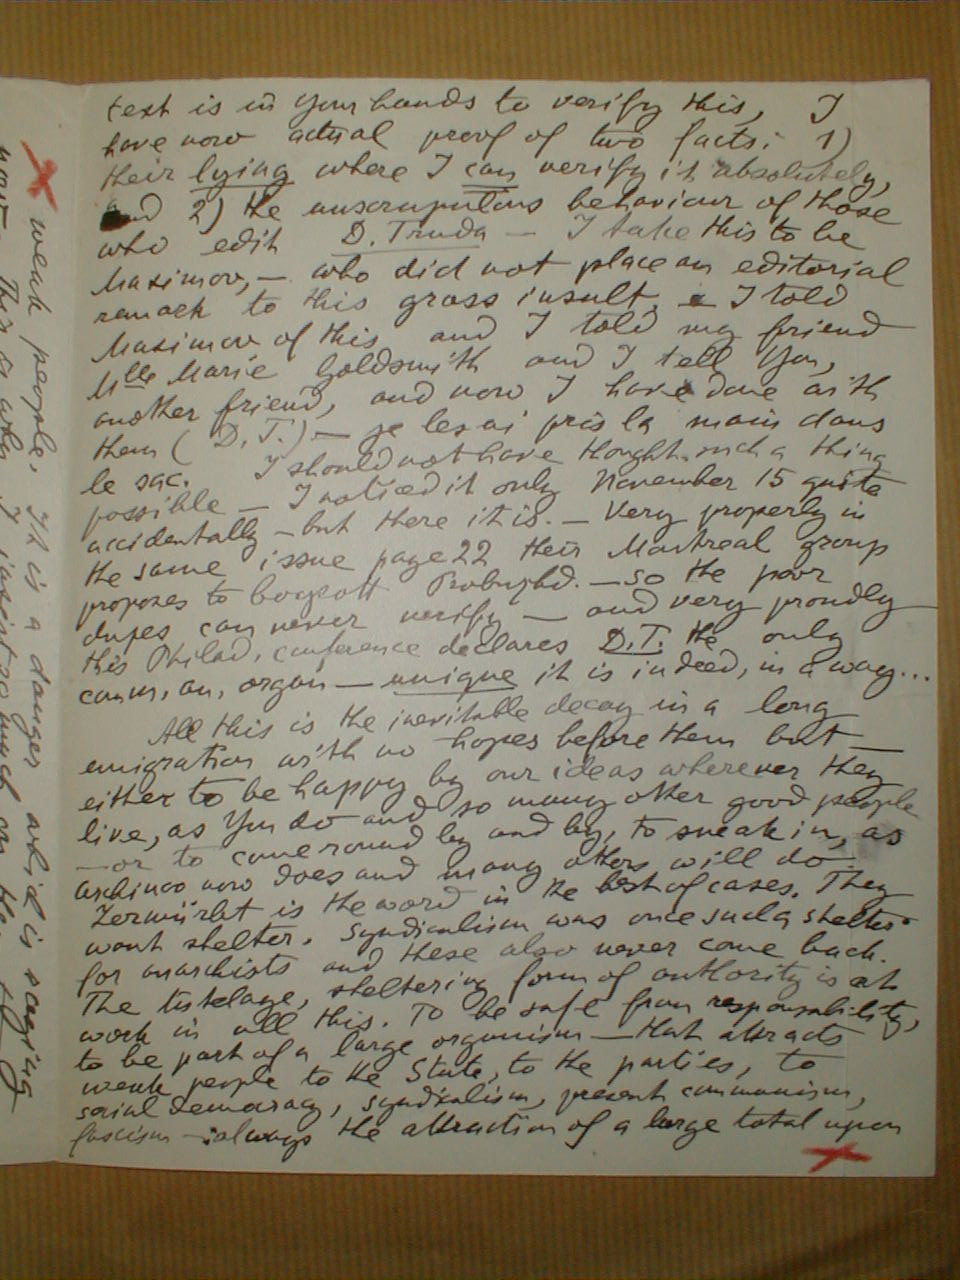 text is in your hands to verify this, I
have now actual proof of two facts: 1)
their lying where I can verify it absolutely,
and 2) the unscrupulous behaviour of those
who edit D. Truda — I take this to be
Maximov, — who did not place an editorial
remark to this gross insult. — I told
Maximov of this and I told my friend
Mlle Marie Goldsmith and I tell You,
another friend, and now I have done with
them (D.T.) — je les ai pris la main dans
le sac. I should not have thought such a thing
possible — I noticed it only November 15 quite
accidentally — but there it is. — Very properly in
the same issue page 22 their Montreal group
proposes to boycott Probuzhd. — so the poor
dupes can never verify — and very proudly
this Philad. conference declares D.T. the only
comm. an. organ — unique it is indeed, in a way...
All this is the inevitable decay in a long
emigration with no hopes before them but —
either to be happy by our ideas wherever they
live, as You do and so many other good people
— or to come round by and by, to sneak in, as
Archinoo now does and many others will do.
Zermürbt is the word in the best of cases. They
want shelter. Syndicalism was once such a shelter
for anarchists and these also never come back.
The tutelage, sheltering form of authority is at
work in all this. To be safe from responsability,
to be part of a large organism — that attracts
weak people to the State, to the parties, to
social democracy, syndicalism, present communism,
fascism — always the attraction of a large total upon
weak people. It is a danger which is saying